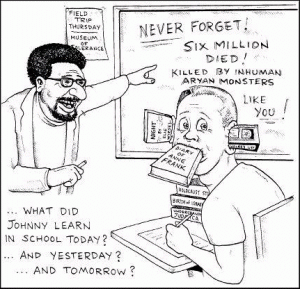 FIELD
TRIP
THURSDAY
MUSEUM
OF
NEVER FORGET!
SIX MILLION
DIED!
KILLED BY INHUMAN
ARYAN MONSTERS
LIKE
YOU!
DIARY
OF
ANNE
FRANK
HOLOCAUST
BIRTH OF
... WHAT DID
JOHNNY LEARN
IN SCHOOL TODAY?
... AND YESTERDAY?
... AND TOMORROW?